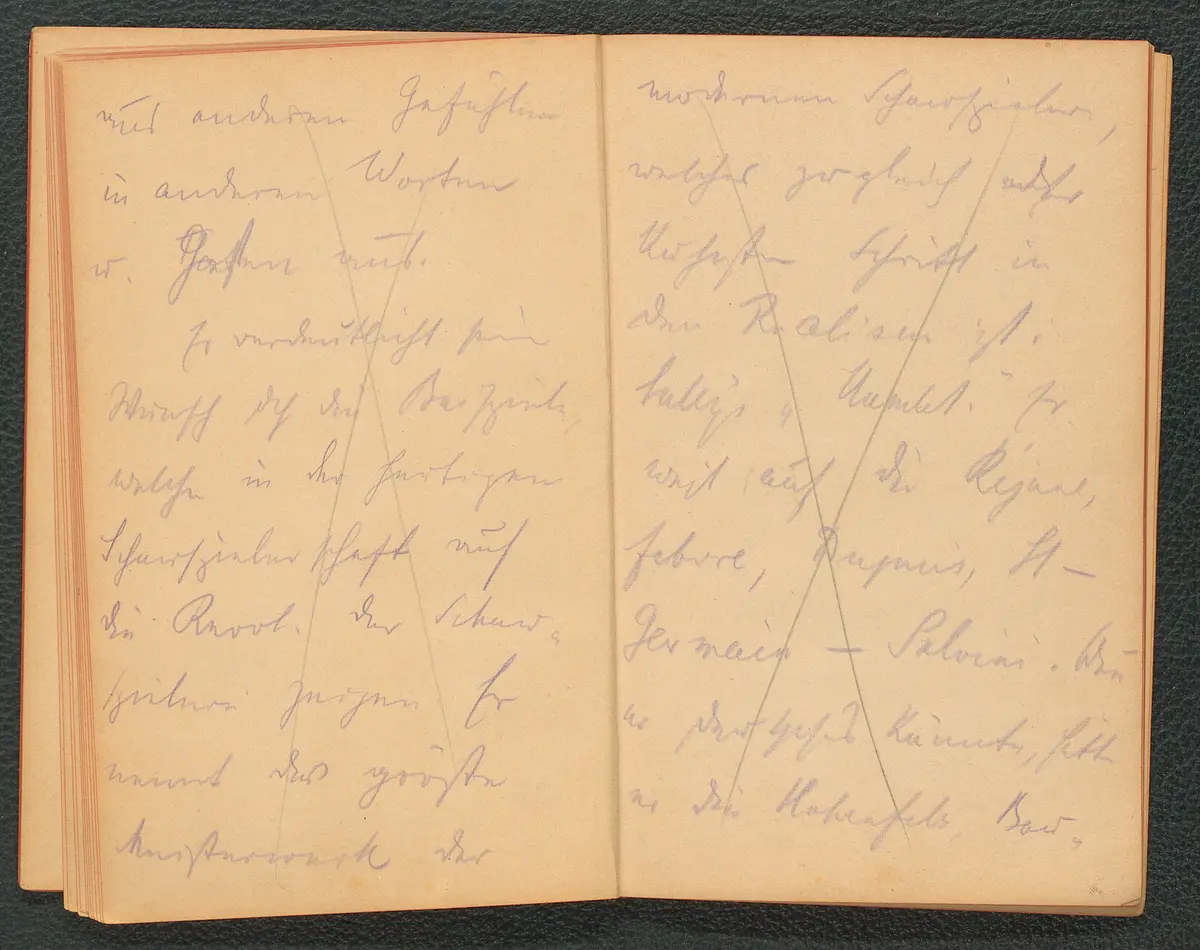 aus anderen Gefühlen
in anderen Worten
u. Gesten aus.
Er verdeutlicht sein
Wunsch dch die Beispiele,
welche in der heutigen
Schauspielerschaft auf
die Revol. der Schau-
spielerei zeigen Er
nennt das größte
Meisterwerk der
modernen Schauspielerei,
welches zugleich der
kühnste Schritt in
den Realism ist:
Sullys „Hamlet." Er
weist auf die Réjane,
Febvre, Dupuis, St-
Germain – Salvini. Wenn
er deutsches könnte, hätte
er die Hohenfels, Bau-